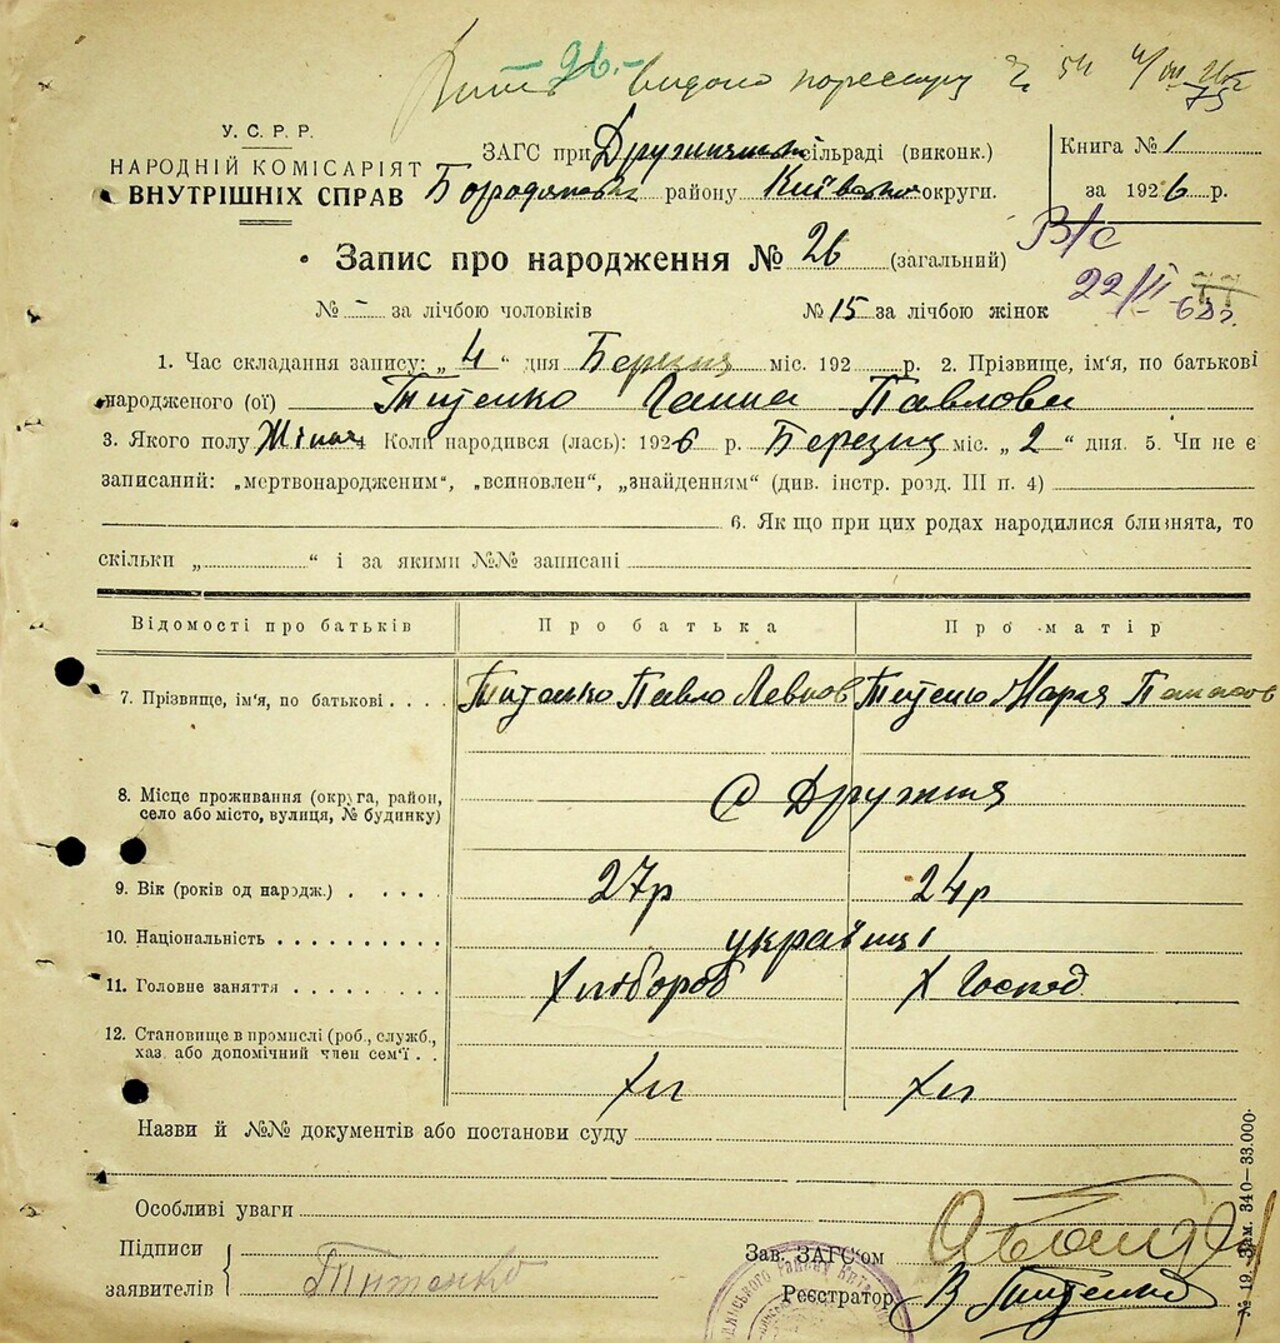 96.
видано
У. С. Р. Р.
НАРОДНІЙ КОМІСАРІЯТ
ВНУТРІШНІХ СПРАВ
ЗАГС при сільраді (виконк.)
району округи.
Книга № 1
за 1926 р.
Запис про народження № 26 (загальний)
В/С
22/II
№ – за лічбою чоловіків № 15 за лічбою жінок
1. Час складання запису: „ 4 “ дня Березня міс. 192 р. 2. Прізвище, ім'я, по батькові
народженого (ої) Титенко Ганна Павлови
3. Якого полу Жіноч 4 Коли народився (лась): 1926 р. Березня міс. „ 2 “ дня. 5. Чи не є
записаний: „мертвонародженим“, „всиновлен“, „знайденням“ (див. інстр. розд. III п. 4)
6. Як що при цих родах народилися близнята, то
скільки „ “ і за якими №№ записані
Відомості про батьків Про батька Про матір
7. Прізвище, ім'я, по батькові . . . . Титенко Павло Левков Титенко Мария Панасов
8. Місце проживання (округа, район,
село або місто, вулиця, № будинку)
С Дружня
9. Вік (років од народж.) . . . . . 27р 24р
10. Національність . . . . . . . . . . українці
11. Головне заняття . . . . . . . . Хлібороб Х Господ
12. Становище в промислі (роб., служб.,
хаз. або допомічний член сем'ї . .
Хл Хл
Назви й №№ документів або постанови суду
Особливі уваги
Підписи
заявителів
Титенко
Зав. ЗАГС'ом
Реєстратор В Титенко
№ 19. Зам. 340—33.000.